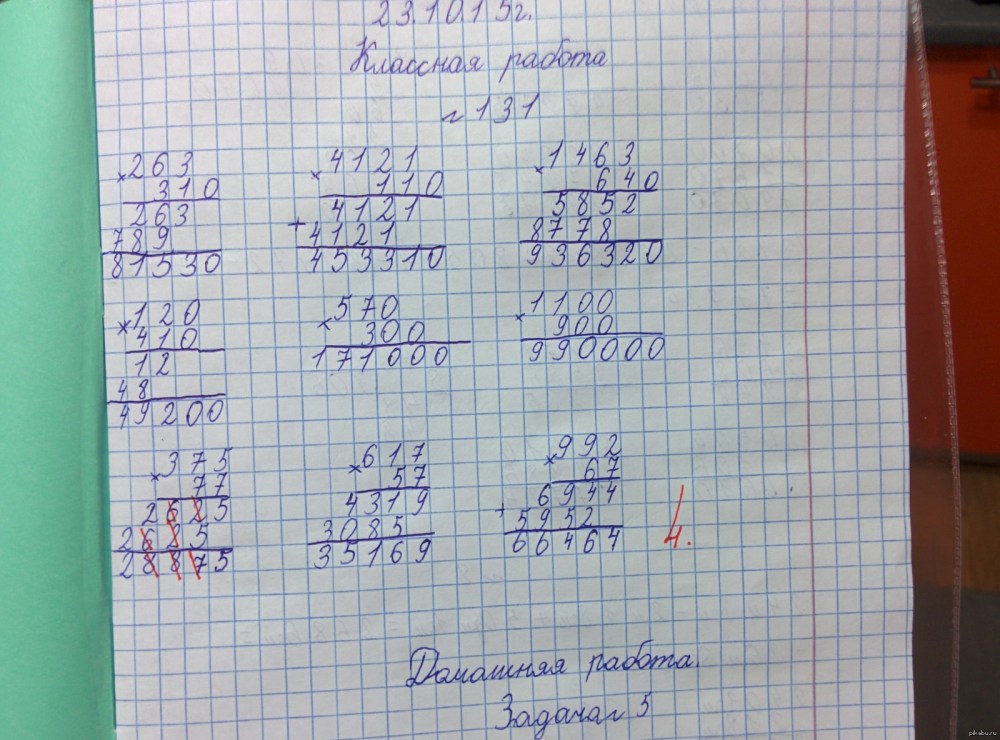 23.10.15г.
Классная работа
№ 131
×263
310
263
789
81530
×4121
110
+4121
4121
453310
×1463
640
5852
8778
936320
×120
410
12
48
49200
×570
300
171000
×1100
900
990000
×375
77
2625
2625
28875
×617
57
4319
3085
35169
×992
67
+6944
5952
66464
4.
Домашняя работа.
Задача № 5
pikabu.ru